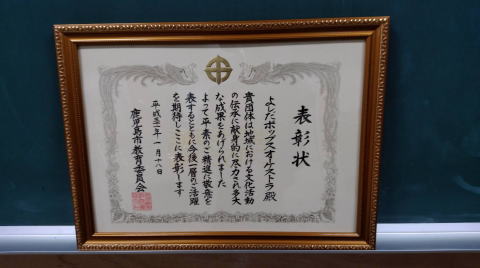 表彰状
よしだポップスオーケストラ殿
貴団体は地域における文化活動
の伝承に献身的に尽力され多大
な成果をあげられました
よって平素のご精進に敬意を
表するとともに今後一層のご活躍
を期待しここに表彰します
一月十八日
鹿児島市教育委員会